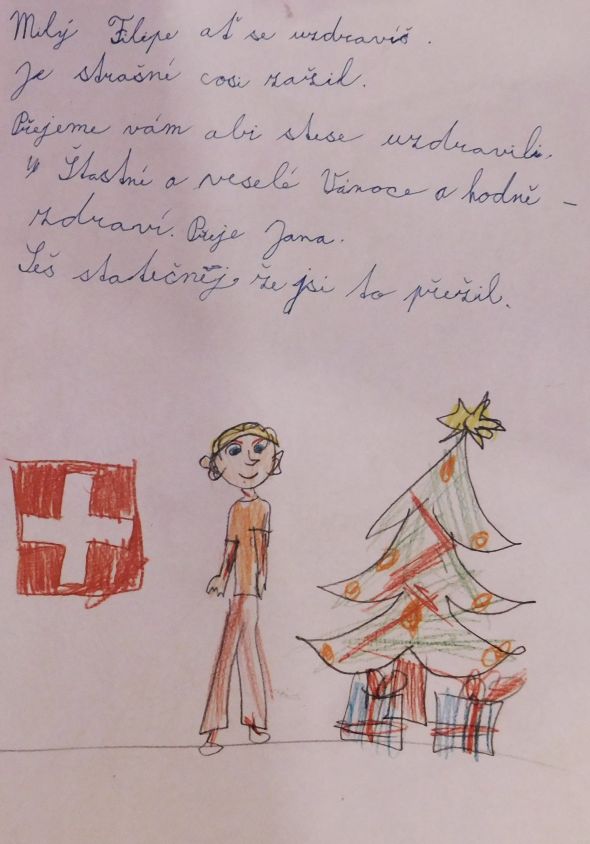 Milý Filipe ať se uzdravíš.
Je strašné cosi zažil.
Přejeme vám abi stese uzdravili.
Štastné a veselé Vánoce a hodně
zdraví. Přeje Jana.
Seš statečněj, že jsi to přežil.